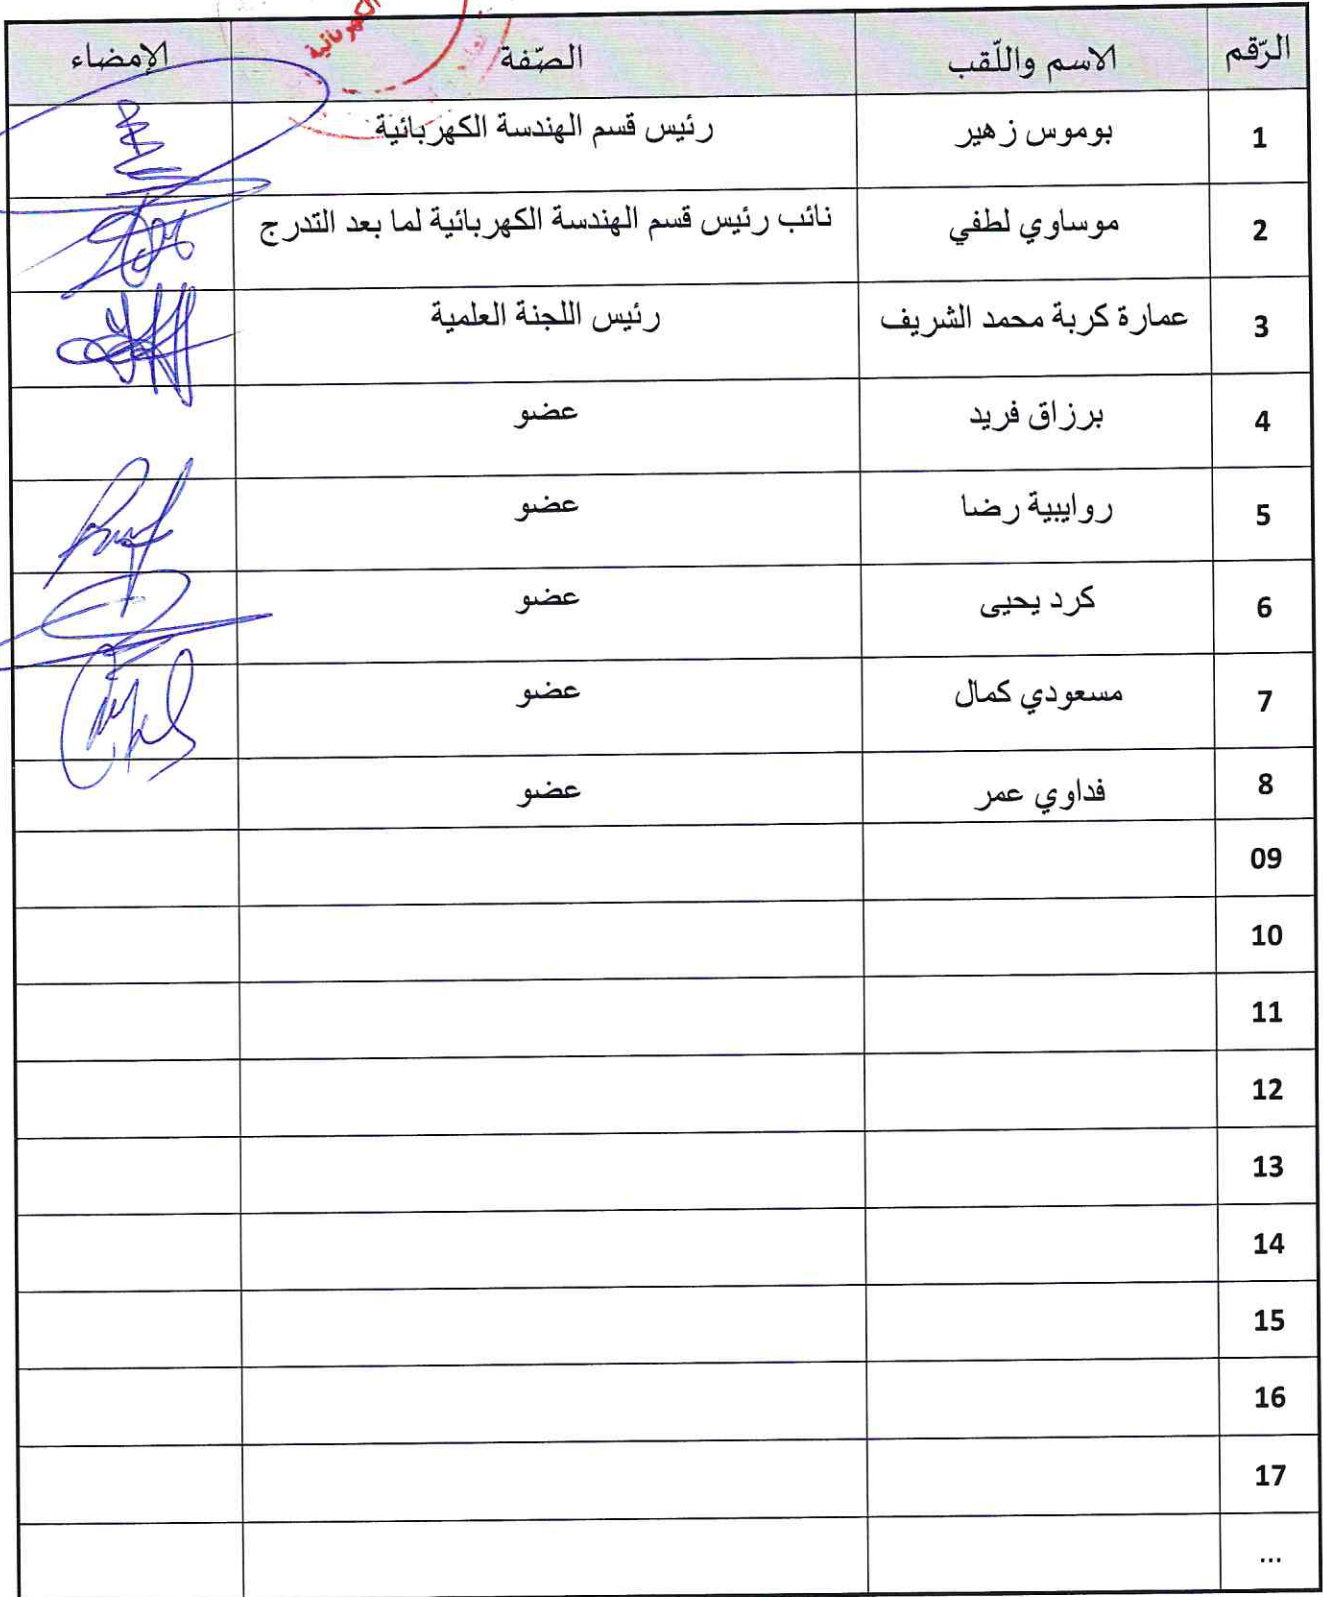 الكهربائية
الرّقم الاسم واللّقب الصّفة الإمضاء
1 بوموس زهير رئيس قسم الهندسة الكهربائية
2 موساوي لطفي نائب رئيس قسم الهندسة الكهربائية لما بعد التدرج
3 عمارة كربة محمد الشريف رئيس اللجنة العلمية
4 برزاق فريد عضو
5 روايبية رضا عضو
6 كرد يحيى عضو
7 مسعودي كمال عضو
8 فداوي عمر عضو
09
10
11
12
13
14
15
16
17
...